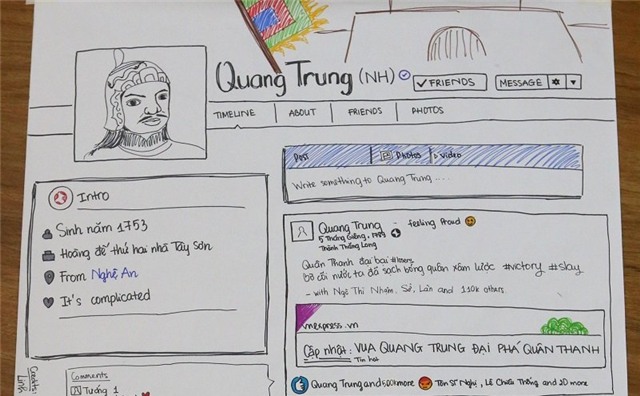 Quang Trung (NH)
✓ FRIENDS
MESSAGE
TIMELINE
ABOUT
FRIENDS
PHOTOS
Post
Photos
Video
Write something to Quang Trung ....
Intro
Sinh năm 1753
Hoàng đế thứ hai nhà Tây Sơn
From Nghệ An
It's complicated
Quang Trung - feeling Proud
5 Tháng Giêng, 1789
Thành Thăng Long
Quân Thanh đại bại #losers
bờ cõi nước ta đã sạch bóng quân xâm lược #victory #slay
- with Ngô Thì Nhậm, Sở, Lân and 110k others
vnexpress.vn
Cập nhật: VUA QUANG TRUNG ĐẠI PHÁ QUÂN THANH
Tin hot
Quang Trung and 500k more
Tôn Sĩ Nghị, Lê Chiêu Thống and 20 more
Comments
Tướng 1
Credits:
Link